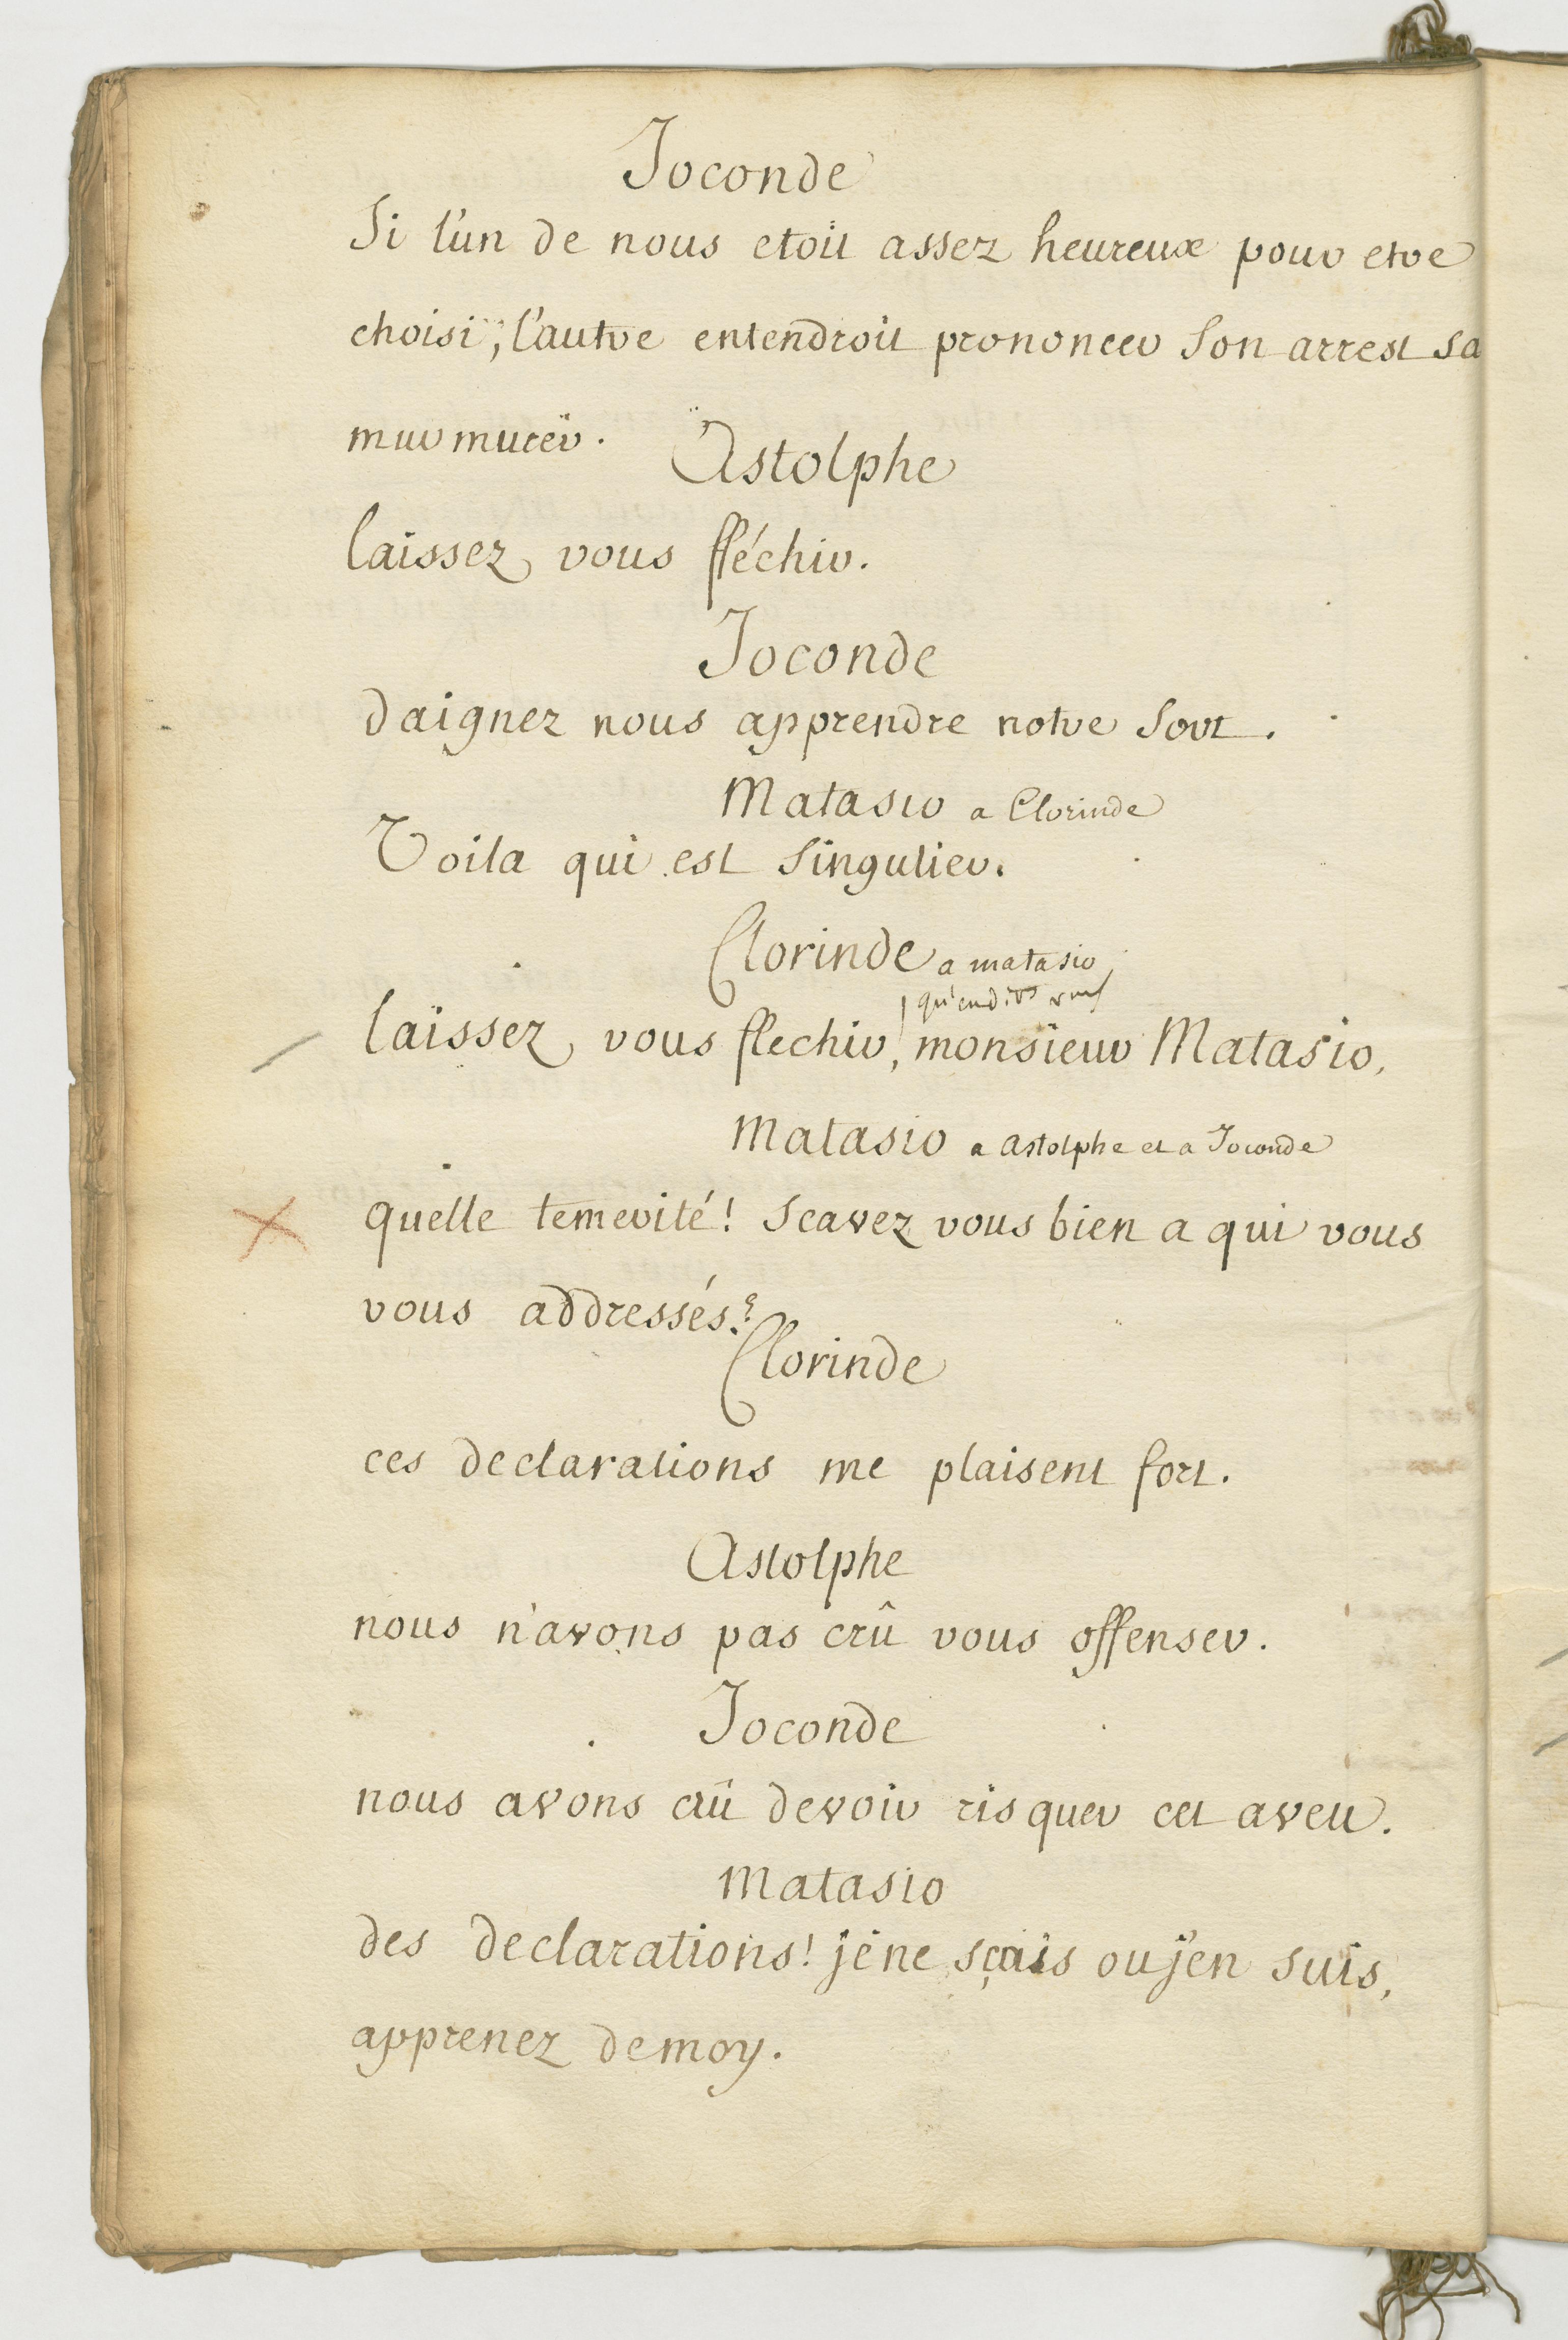 Joconde
Si l'un de nous etoit assez heureux pour etre
choisi, l'autre entendroit prononcer Son arrest sa
murmurer.
Astolphe
laissez vous fléchir.
Joconde
daignez nous apprendre notre Sort.
Matasio a Clorinde
Voila qui est Singulier.
Clorinde a matasio
qu'en dites vous
laissez vous flechir, monsieur Matasio,
Matasio a astolphe et a Joconde
quelle temerité! Scavez vous bien a qui vous
vous addressés?
Clorinde
ces declarations me plaisent fort.
Astolphe
nous n'avons pas crû vous offenser.
Joconde
nous avons crû devoir risquer cet aveu.
Matasio
des declarations! je ne sçais ou j'en suis,
apprenez de moy.